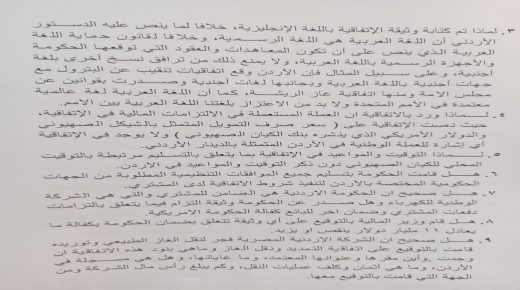 ٣. لماذا تم كتابة وثيقة الإتفاقية باللغة الإنجليزية، خلافا لما ينص عليه الدستور
الأردني أن اللغة العربية هي اللغة الرسمية، وخلافا لقانون حماية اللغة
العربية الذي ينص على أن تكون المعاهدات والعقود التي توقعها الحكومة
والأجهزة الرسمية باللغة العربية، ولا يمنع ذلك من ترافق نسخ أخرى بلغة
أجنبية، وعلى سبيل المثال فإن الأردن وقع اتفاقيات تنقيب عن البترول مع
جهات أجنبية باللغة العربية وبجانبها لغات أجنبية وصدرت بقوانين عن
مجلس الامة ومنها اتفاقية غاز الريشة، كما أن اللغة العربية لغة عالمية
معتمدة في الامم المتحدة ولا بد من الاعتزاز بلغتنا اللغة العربية بين الامم.
٤. لماذا ورد بالاتفاقية ان العملة المستعملة في الالتزامات المالية في الإتفاقية،
حيث نصت الاتفاقية على ( سعر صرف التمويل المتمثل بالشيكل الصهيوني
والدولار الأمريكي الذي ينشره بنك الكيان الصهيوني ) ولا يوجد في الإتفاقية
أي إشارة للعملة الوطنية في الاردن المتمثلة بالدينار الأردني.
٥. لماذا التوقيت والمواعيد في الإتفاقية بما يتعلق بالتسليم مرتبطة بالتوقيت
المحلي للكيان الصهيوني دون ذكر التوقيت والمواعيد في الأردن.
٦. هل قامت الحكومة بتسليم جميع الموافقات التنظيمية المطلوبة من الجهات
الحكومية المختصة بالأردن لتنفيذ شروط الاتفاقية لدى المشتري.
٧. هل صحيح ان الحكومة الاردنية هي الضامن للمشتري والتي هي الشركة
الوطنية للكهرباء وهل صدر عن الحكومة وثيقة التزام فيما يتعلق بالتزامات
دفعات المشتري وضمان اخر للبائع كفالة الحكومة الامريكية.
٨. هل قام وزير المالية بالتوقيع على أي وثيقة تتعلق بضمان الحكومة بكفالة ما
يعادل ١١ مليار دولار ينقص او يزيد.
٩. هل صحيح ان الشركة الاردنية المصرية فجر لنقل الغاز الطبيعي وتوريده
قامت بالتوقيع على اتفاقية التمديد ونقل الغاز وماهي بنود هذه الاتفاقية ان
وجدت .واين مقرها وعنوانها المعتمد، وما غاياتها، وهل هي مسجلة في
الأردن، وما هي أثمان وكلف عمليات النقل، وكم يبلغ رأس مال الشركة ومن
الجهة التي قامت بالتوقيع معها.